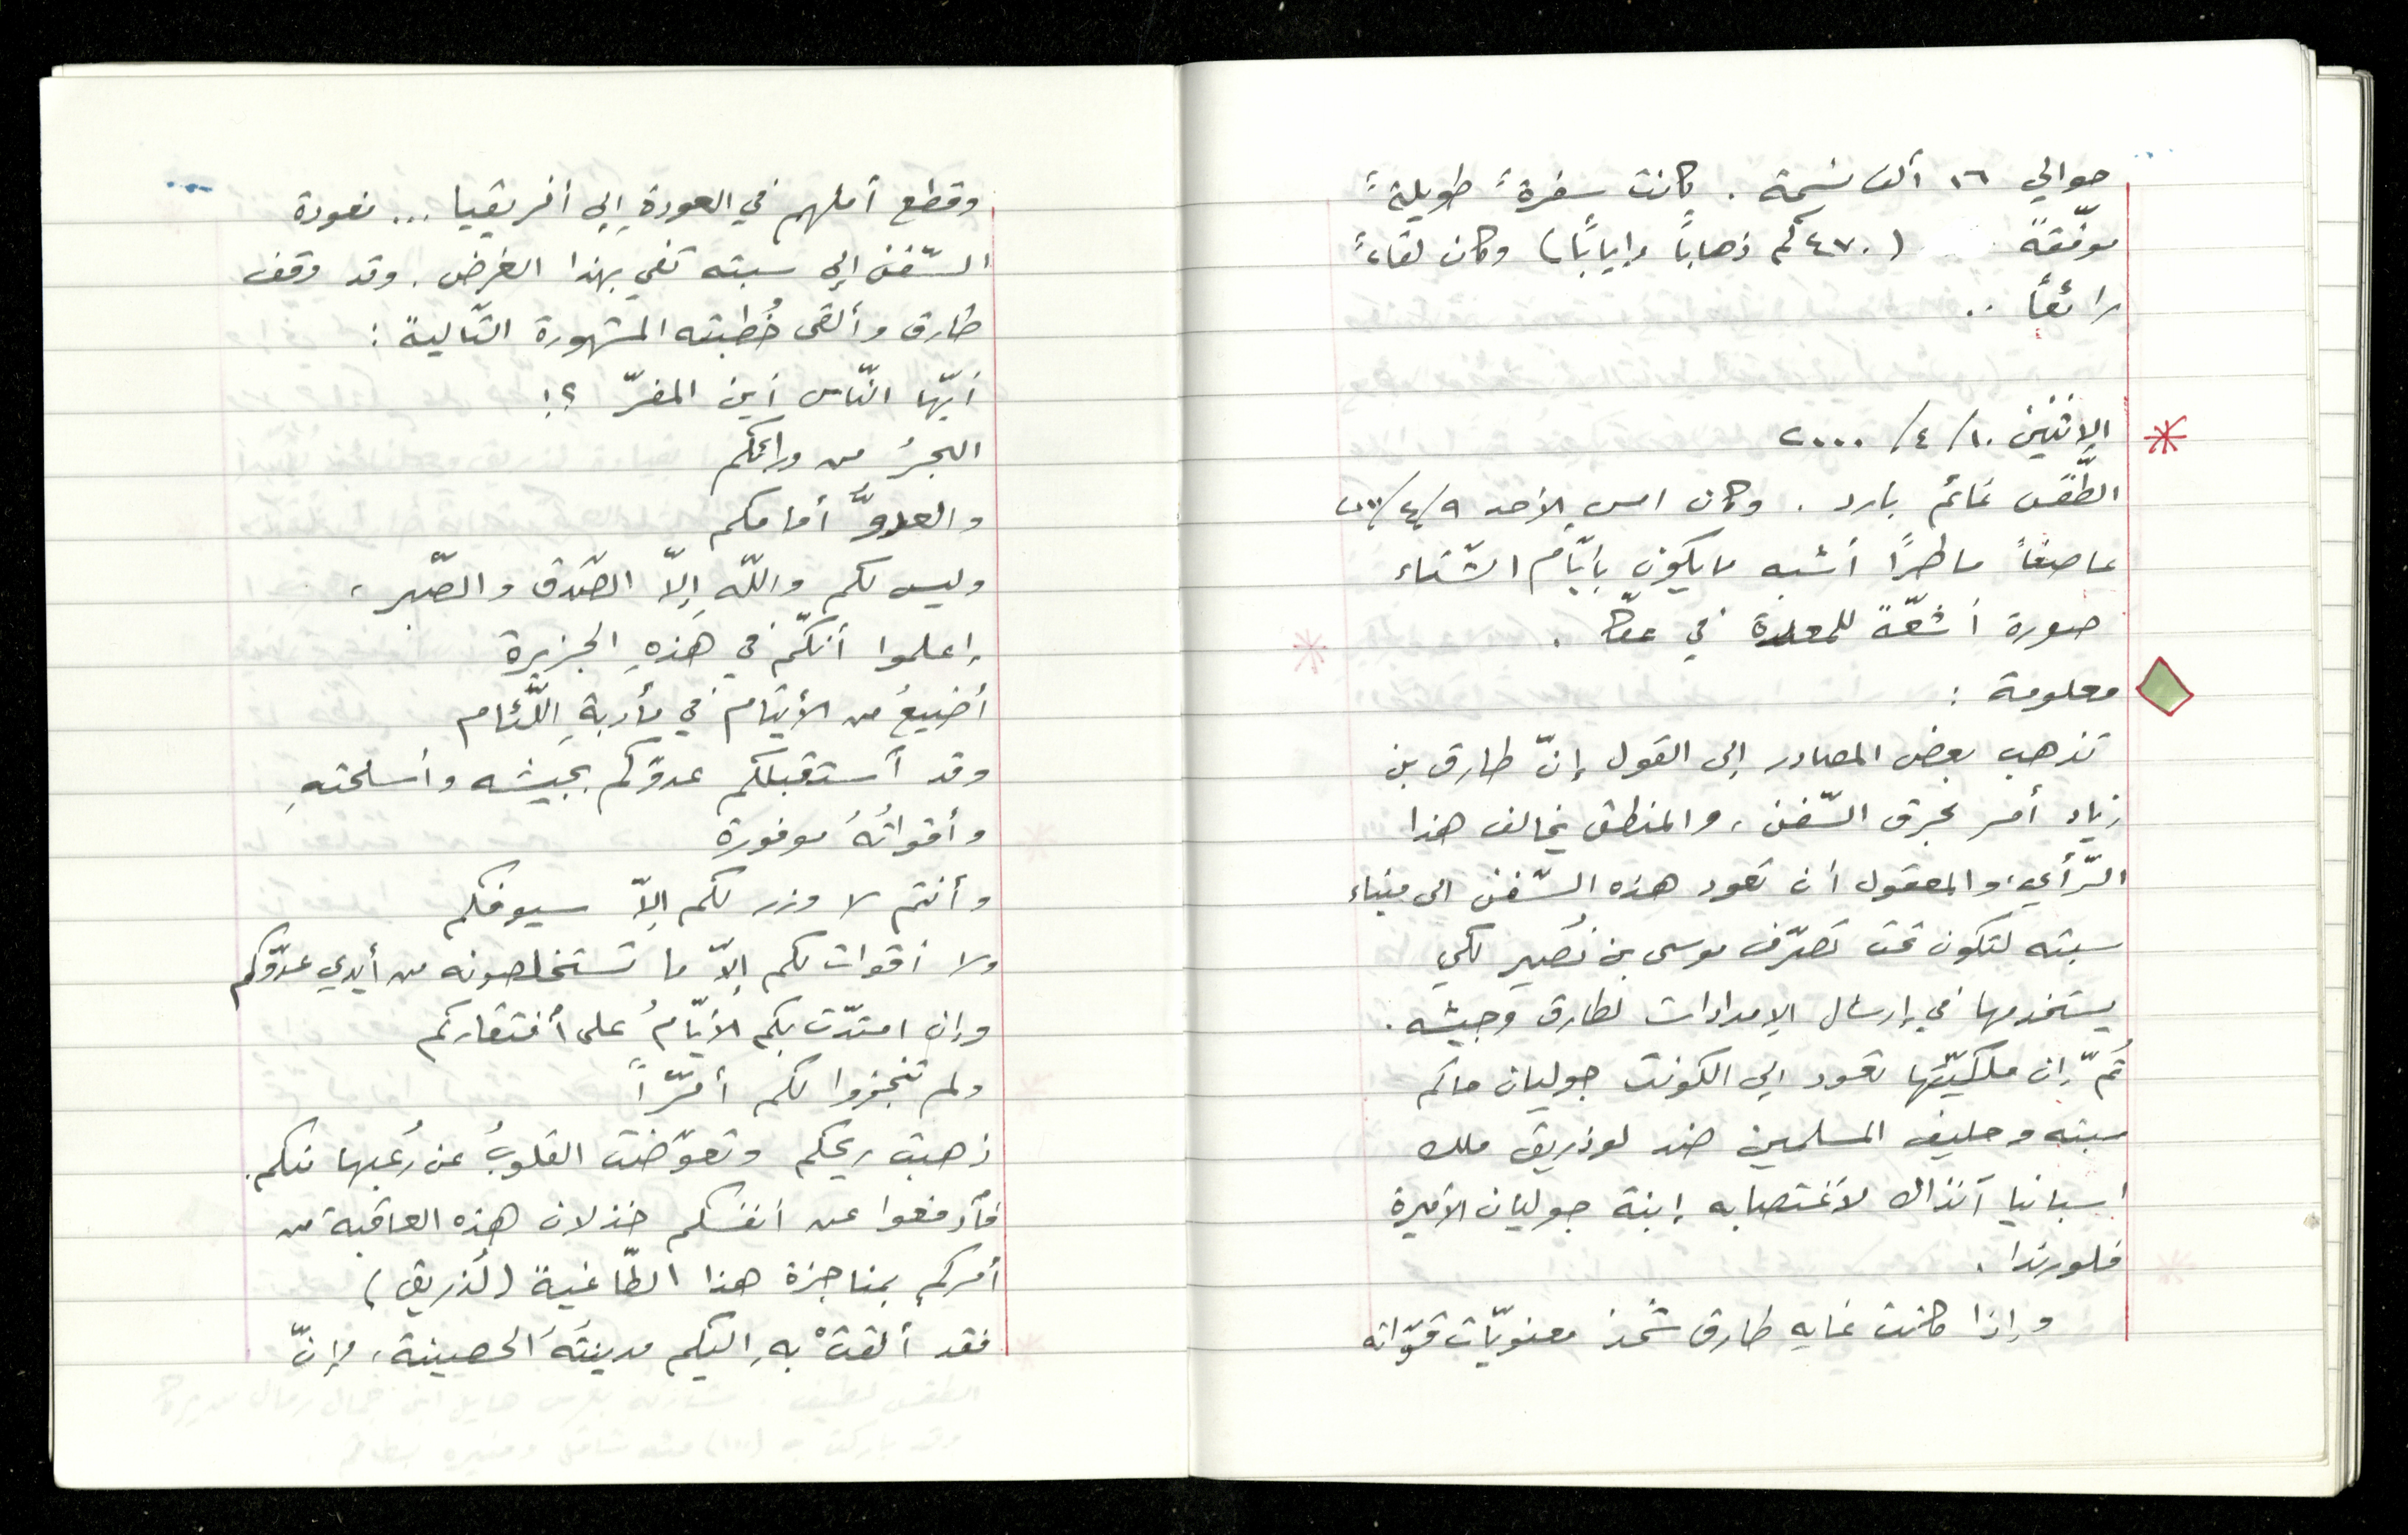 حوالي ١٦ ألف نسمة . كانت سفرةً طويلةً
موفّقةً (٤٧٠ كم ذهاباً وإياباً) وكان لقاءً
رائعاً ..
الإثنين ١٠/٤/٢٠٠٠
الطّقس غائم بارد . وكان امس الأحد ٩/٤/
عاصفاً ماطراً أشبه ما يكون بأيّام الشّتاء
صورة أشعّة للمعدة في عكّا .
معلومة :
تذهب بعض المصادر إلى القول إنّ طارق بن
زياد أمر بحرق السّفن ، والمنطق يخالف هذا
الرّأي ، والمعقول أن تعود هذه السّفن الى ميناء
سبته لتكون تحت تصرّف موسى بن نُصير لكي
يستخدمها في إرسال الإمدادات لطارق وجيشه .
ثُمّ إن ملكيّتها تعود إلى الكونت جوليان حاكم
سبته وحليف المسلمين ضد لوذريق ملك
اسبانيا آنذاك لأغتصابه إبنة جوليان الأميرة
فلورندا .
وإذا كانت غاية طارق شحذ معنويّات قوّاته
وقطع أملهم في العودة إلى أفريقيا ... فعودة
السّفن إلى سبته تفي بهذا الغرض . وقد وقف
طارق وألقى خُطبته المشهورة التّالية :
أيّها النّاس أين المفرّ ؟!
البحرُ من ورائكم
والعدوُّ أمامكم
وليس لكم واللّهِ إلاّ الصّدق والصّبر ،
إعلموا أنّكم في هذهِ الجزيرة
أضيعُ من الأيتام في مأدبةِ اللّئام
وقد أستقبلكم عدوّكم بجيشه وأسلحتهِ
وأقواتُهُ موفورة
وأنتم لا وزر لكم إلاّ سيوفكم
ولا أقوات لكم إلاّ ما تستخلصونه من أيدي عدوّكم
وإن امتدّت بكم الأيّامُ على أفتقاركم
ولم تنجزوا لكم أمرّاً
ذهبت ريحكم وتعوّضت القلوبُ عن رُعبها منكم .
فأدفعوا عن انفسكم خذلان هذه العاقبة من
أمركم بمناجزة هذا الطّاغية (لُذريق)
فقد ألقتْ بهِ اليكم مدينتُهُ الحصينة ، وإنّ